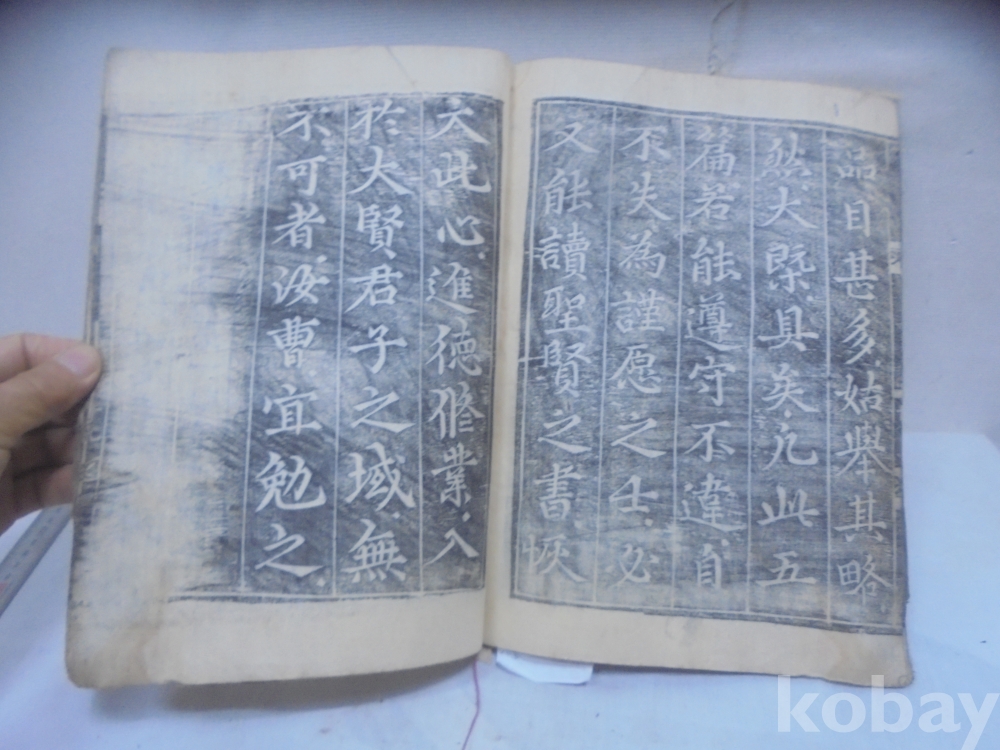 品目甚多姑舉其略
然大槩具矣凡此五
篇若能遵守不違自
不失為謹愿之士必
又能讀聖賢之書恢
大此心進德修業入
於大賢君子之域無
不可者汝曹宜勉之
kobay